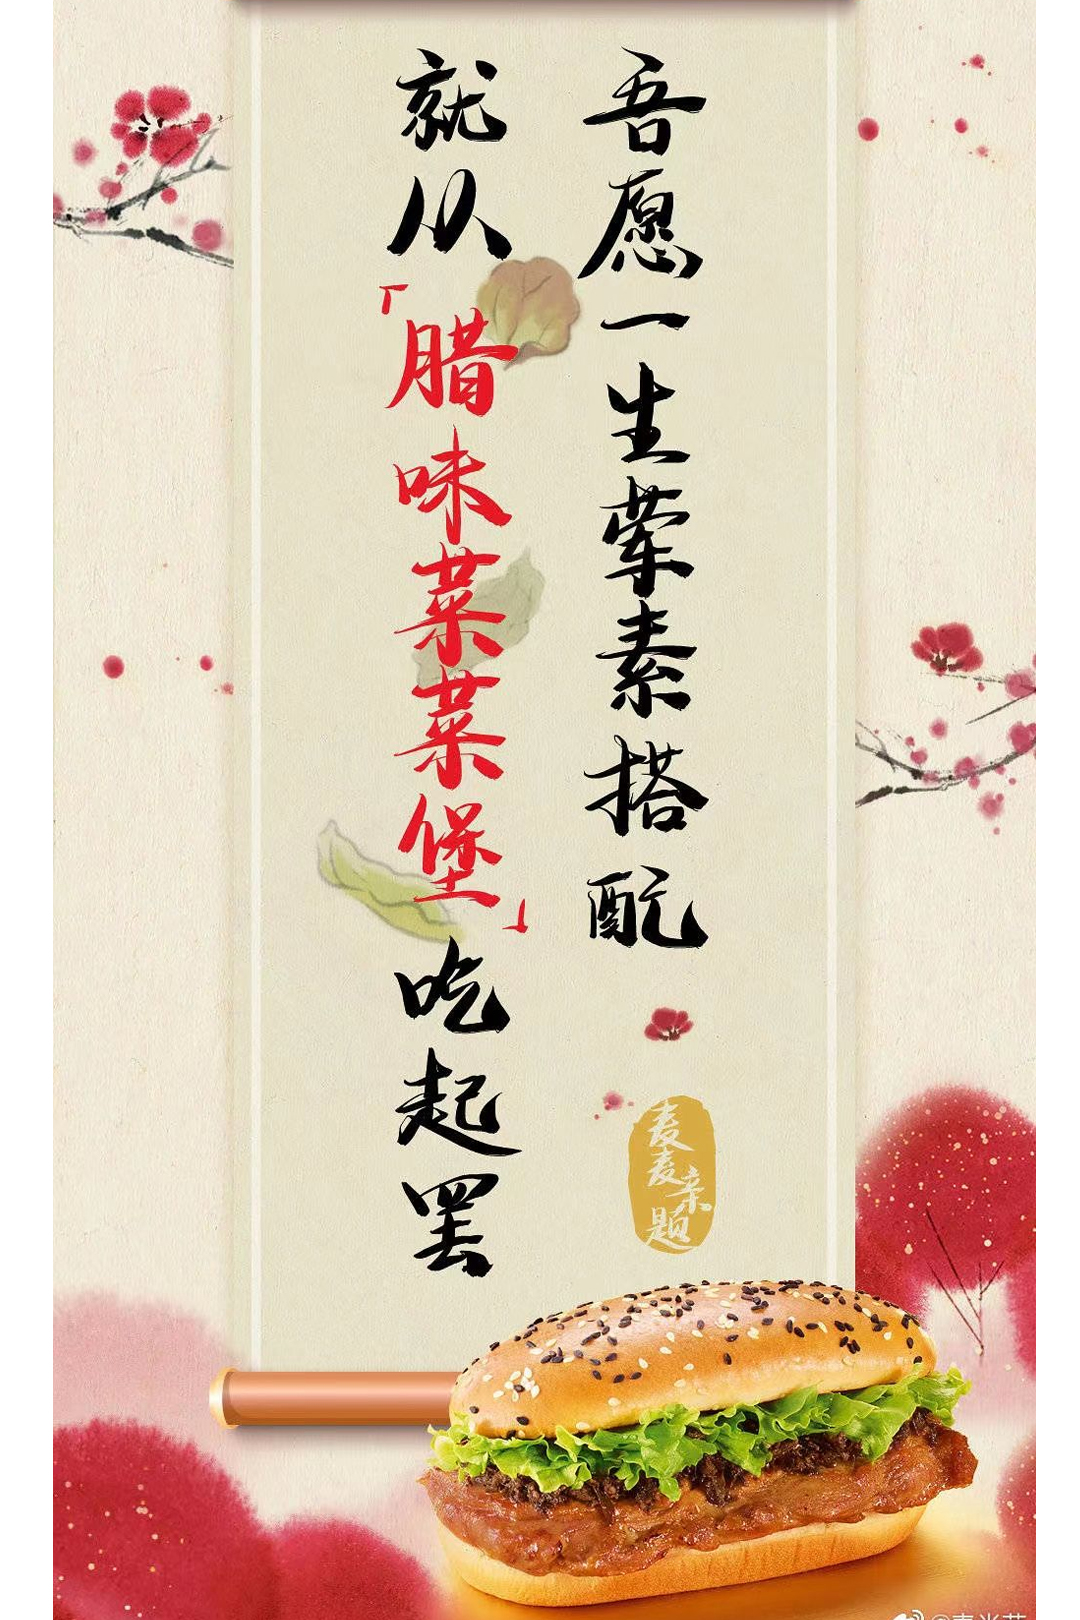 吾愿一生荤素搭配
就从「腊味菜菜堡」吃起罢
麦麦亲题